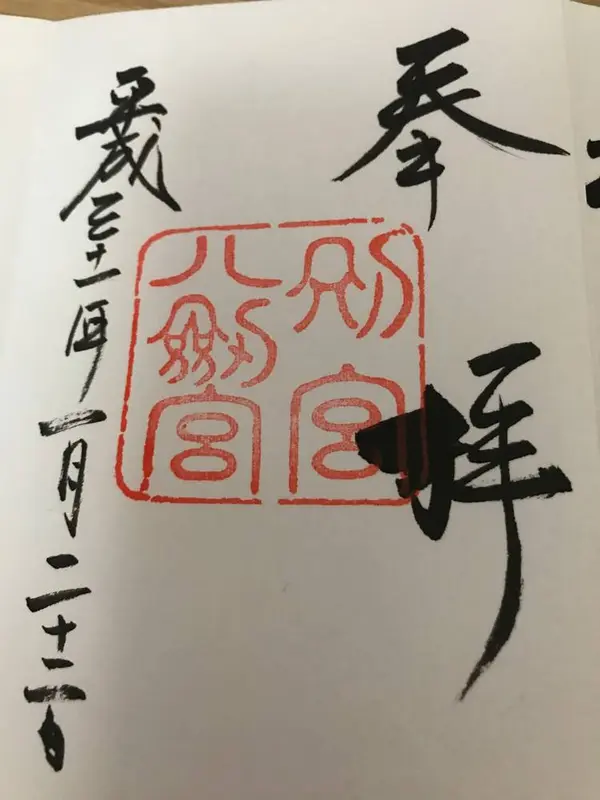 奉拝
別宮
八剣宮
平成三十一年一月二十二日